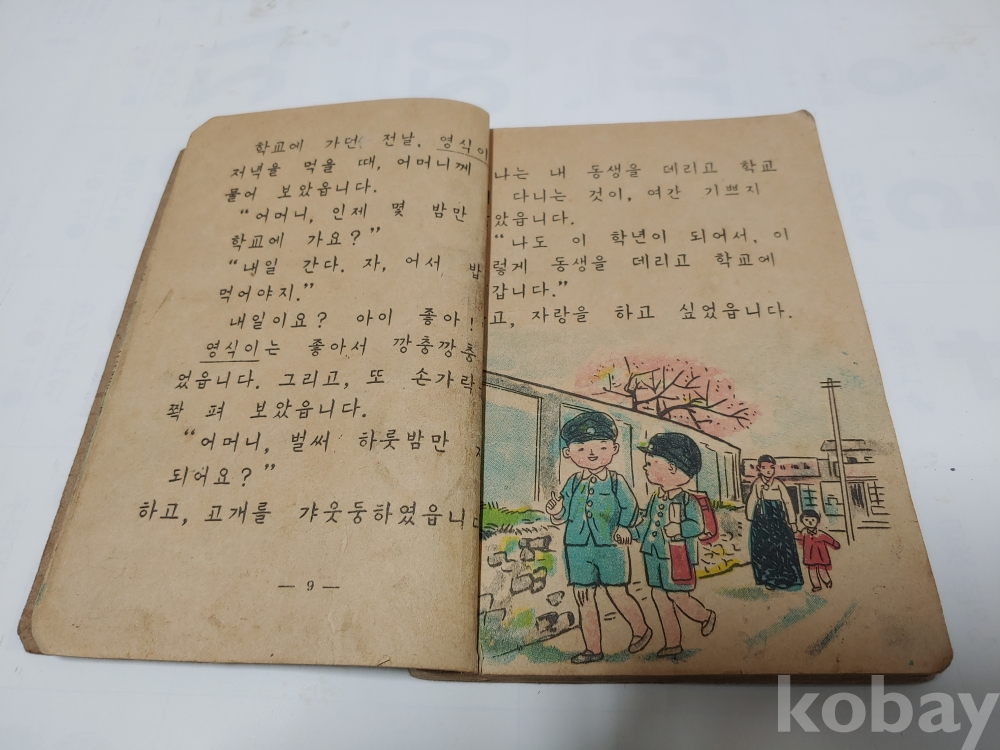 학교에 가던 전날, 영식이
저녁을 먹을 때, 어머니께
물어 보았읍니다.
“어머니, 인제 몇 밤만
학교에 가요?”
“내일 간다. 자, 어서 밥
먹어야지.”
내일이요? 아이 좋아!
영식이는 좋아서 깡충깡충
었읍니다. 그리고, 또 손가락
쫙 펴 보았읍니다.
“어머니, 벌써 하룻밤만
되어요?”
하고, 고개를 갸웃둥하였읍니다
— 9 —
나는 내 동생을 데리고 학교
다니는 것이, 여간 기쁘지
았읍니다.
“나도 이 학년이 되어서, 이
렇게 동생을 데리고 학교에
갑니다.”
고, 자랑을 하고 싶었읍니다.
kobay